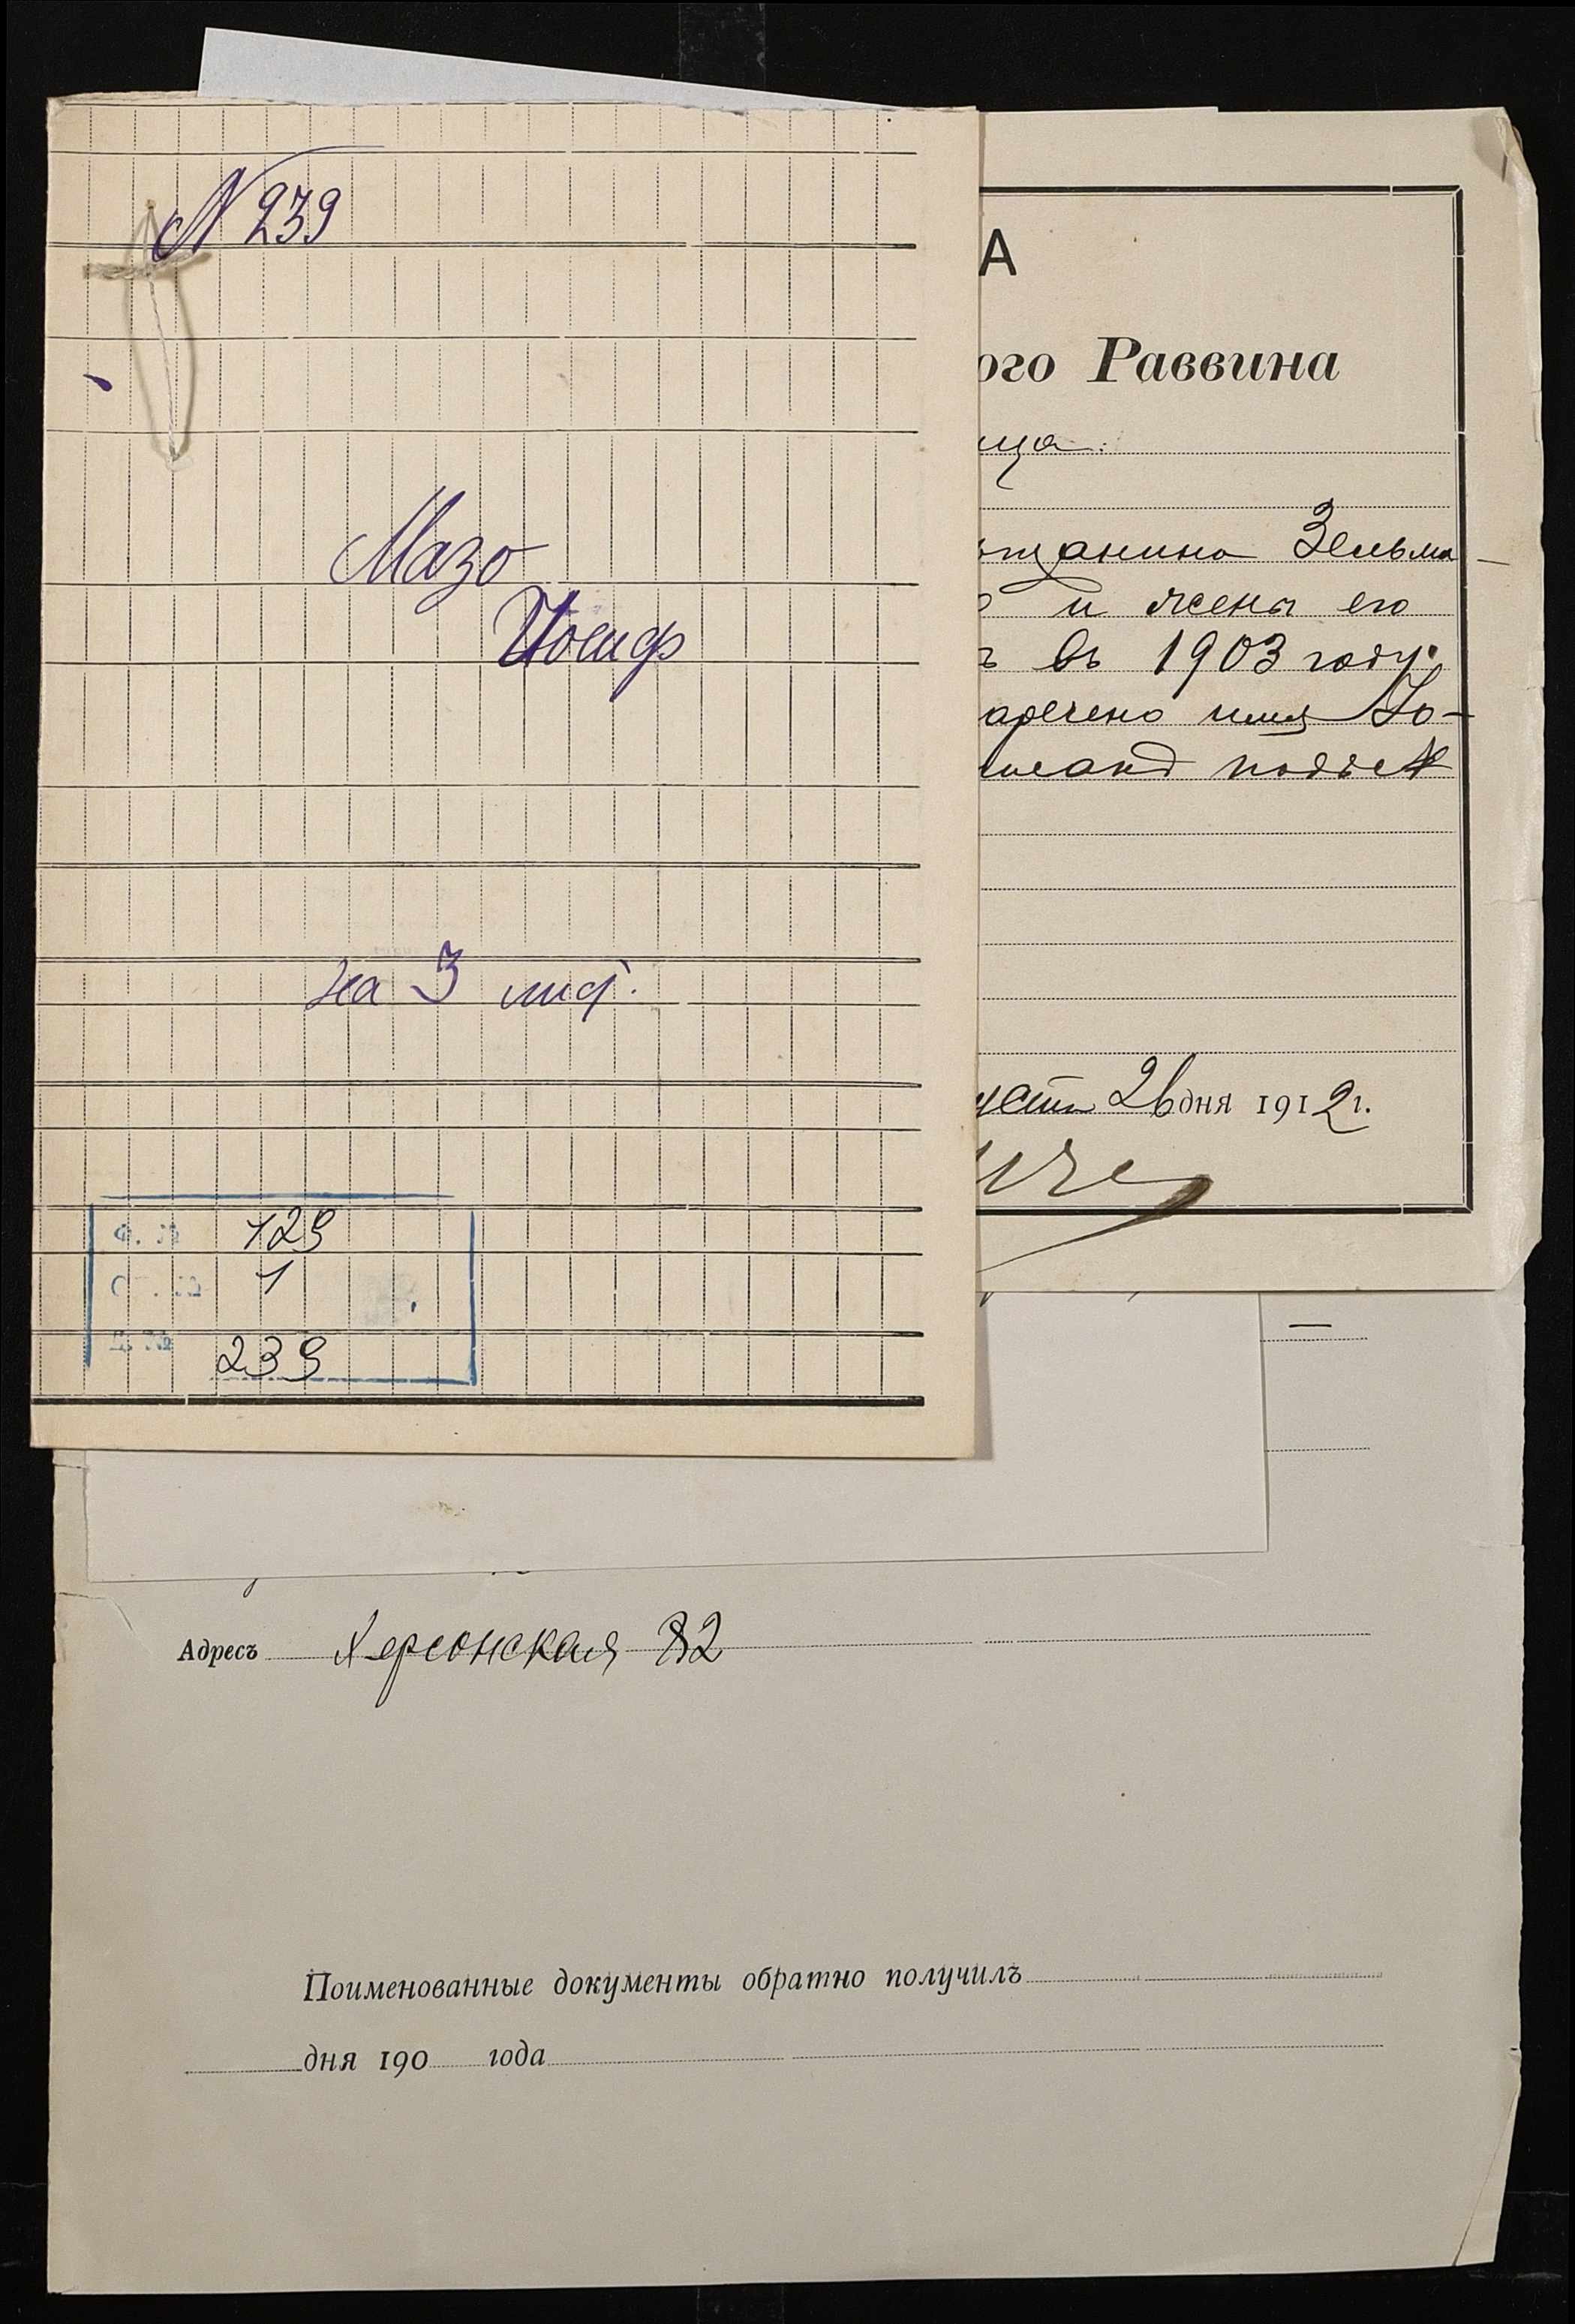 N 239
Мазо
Иосиф
на 3 лист.
Ф. № 129
О. № 1
Д. № 239
А
ого Раввина
ица:
щанина Зельма-
и жены его
ъ въ 1903 году.
аречено имя Іо-
подъ №
густа 26 дня 1912 г.
Адресъ Херсонская 82
Поименованные документы обратно получилъ
дня 190 года